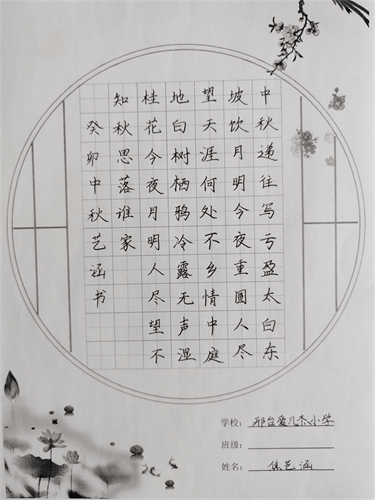 中秋递往写亏盈太白东
坡饮月明今夜重圆人尽
望天涯何处不乡情中庭
地白树栖鸦冷露无声湿
桂花今夜月明人尽望不
知秋思落谁家
癸卯中秋艺涵书
学校：邢台小学
班级：
姓名：焦艺涵